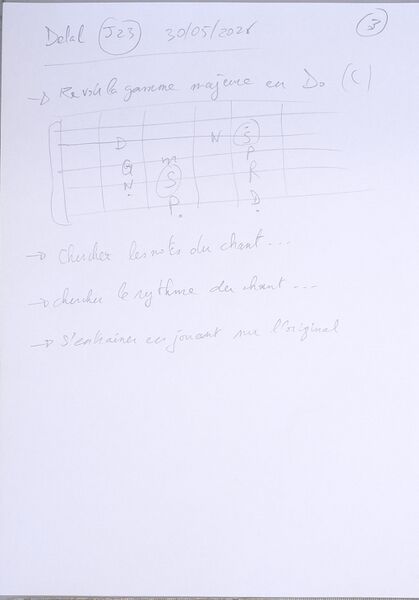 Delal J23 30/05/2026
3
→ Revoir la gamme majeure en Do (C)
D N S
G m P
N S R
P D
→ Chercher les notes du chant...
→ chercher le rythme du chant...
→ S'entraîner en jouant sur l'original